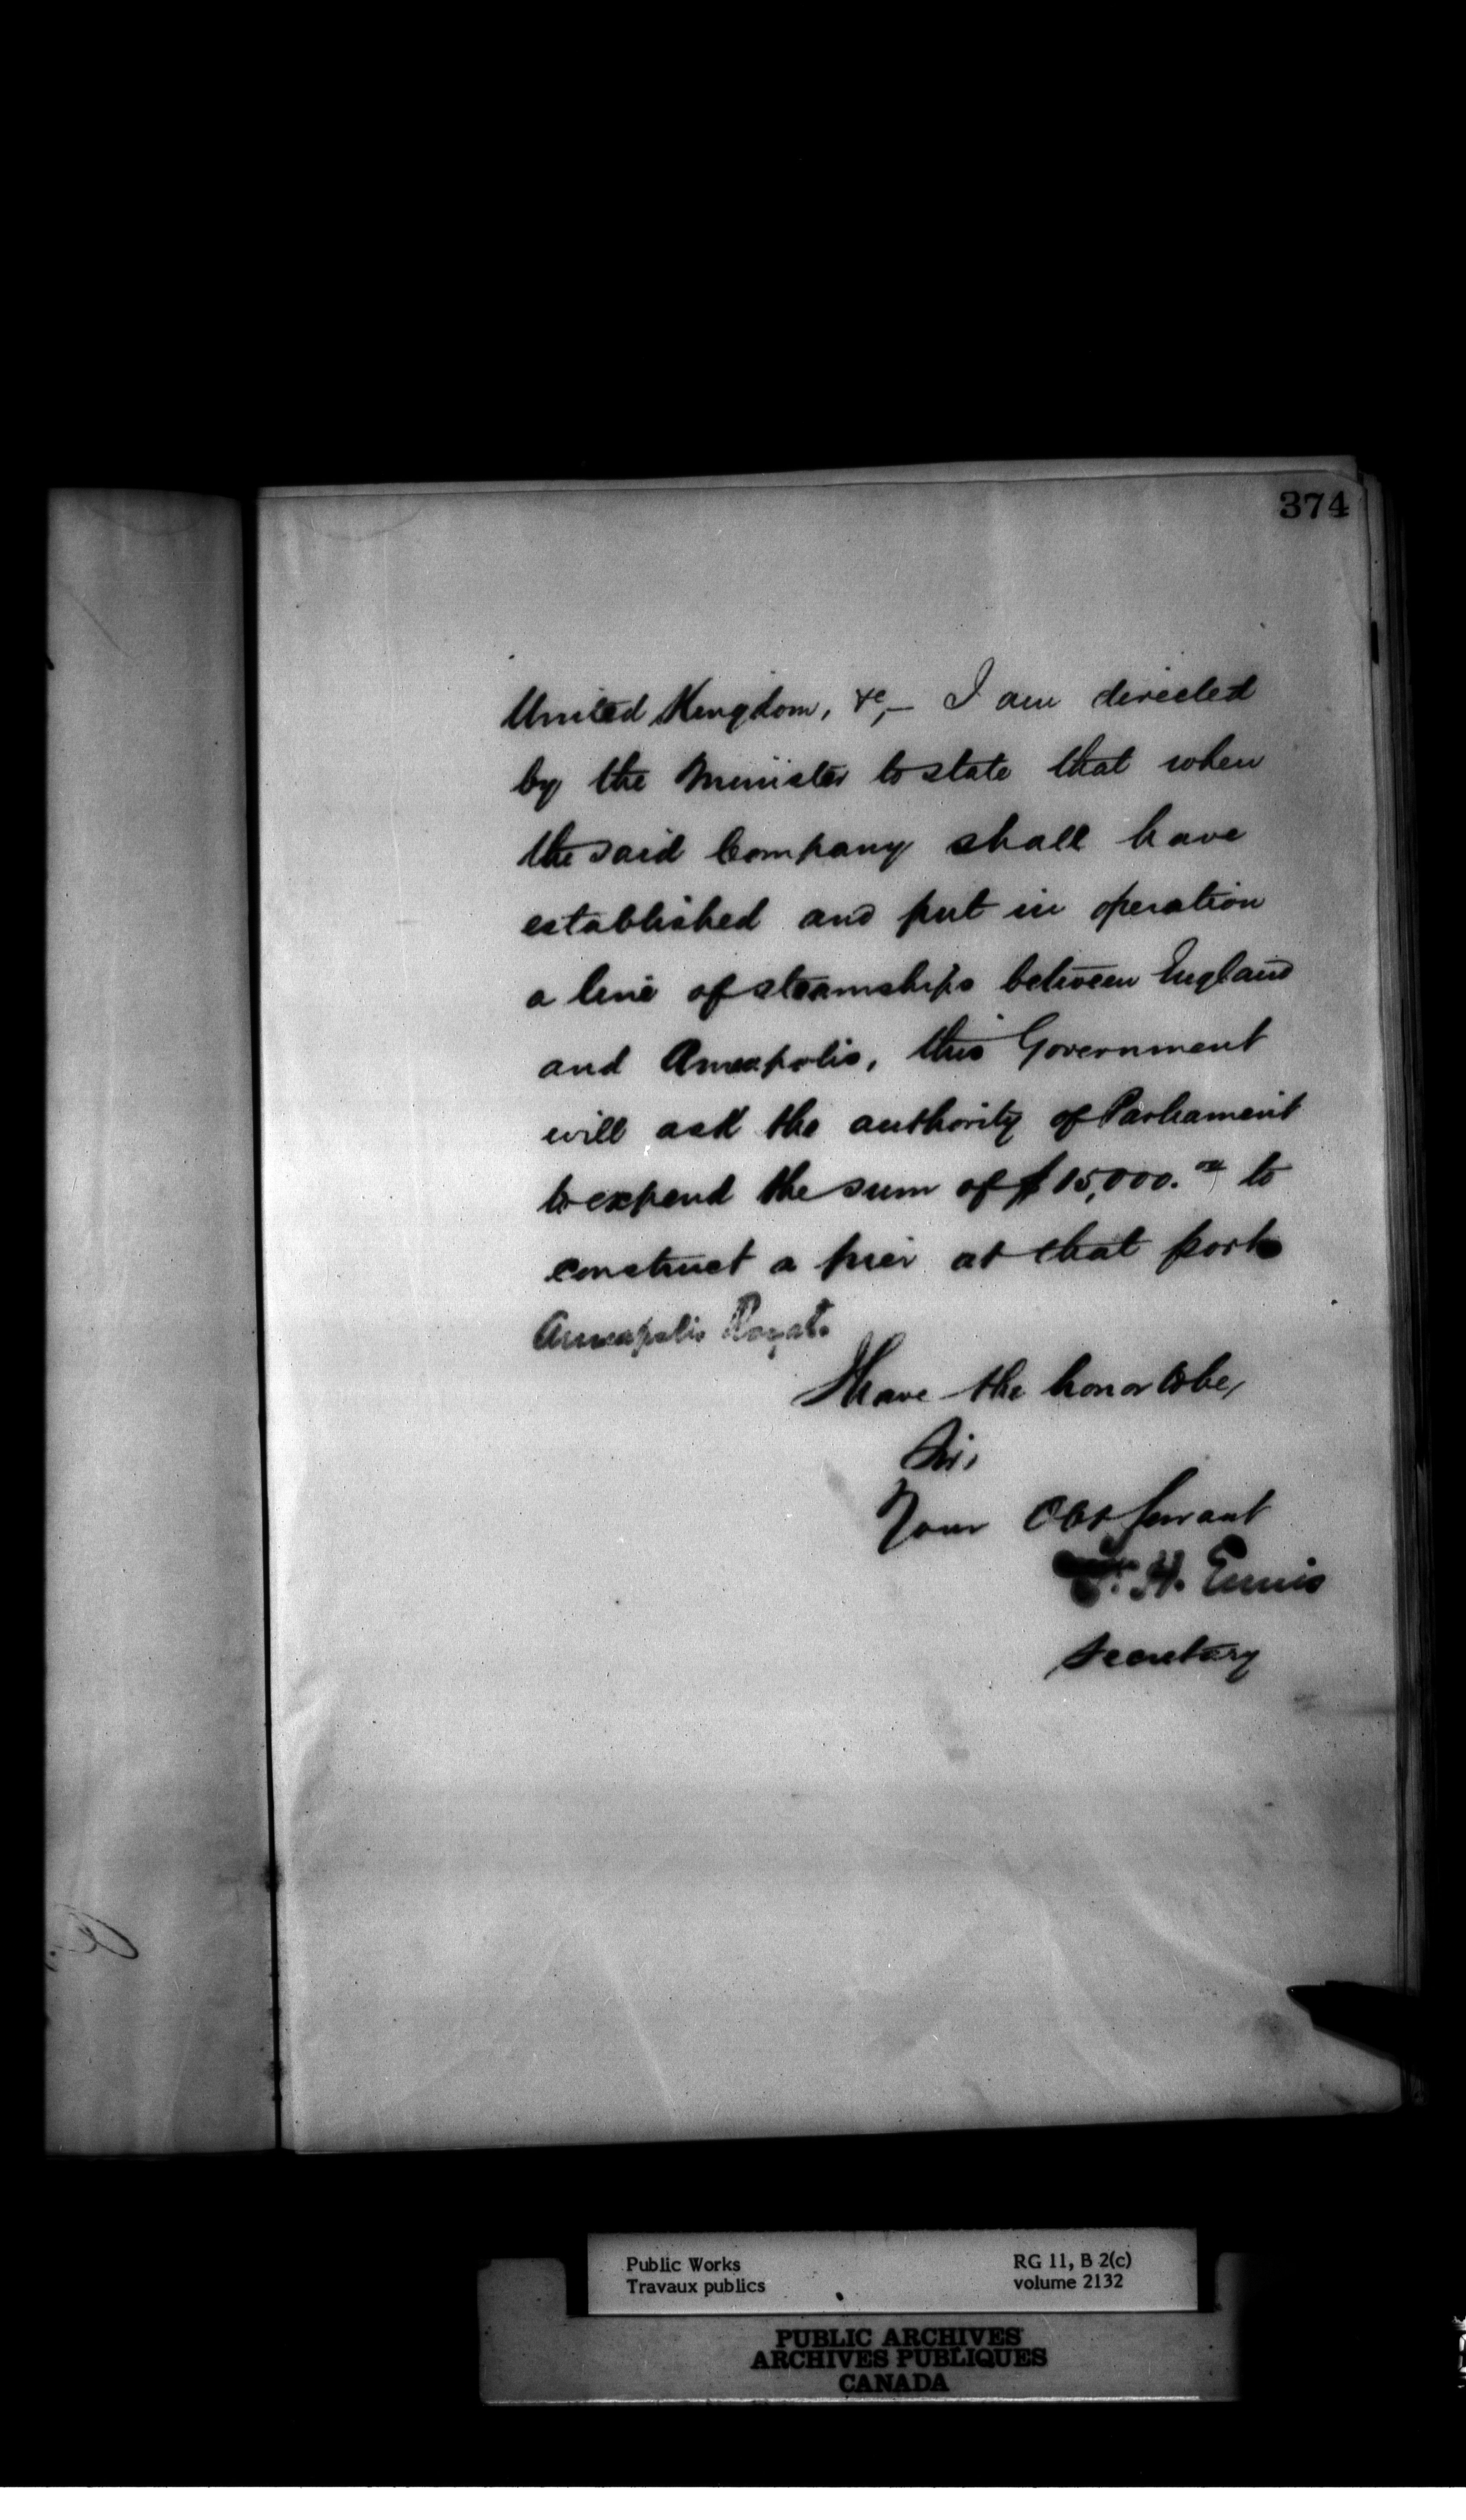 374
United Kingdom, &c,— I am directed
by the Minister to state that when
the said Company shall have
established and put in operation
a line of steamships between England
and Annapolis, this Government
will ask the authority of Parliament
to expend the sum of $15,000.00 to
construct a pier at that port
Annapolis Royal.
I have the honor to be,
Sir,
Your Obt Servant
F. H. Ennis
Secretary
Public Works
Travaux publics
RG 11, B 2(c)
volume 2132
PUBLIC ARCHIVES
ARCHIVES PUBLIQUES
CANADA